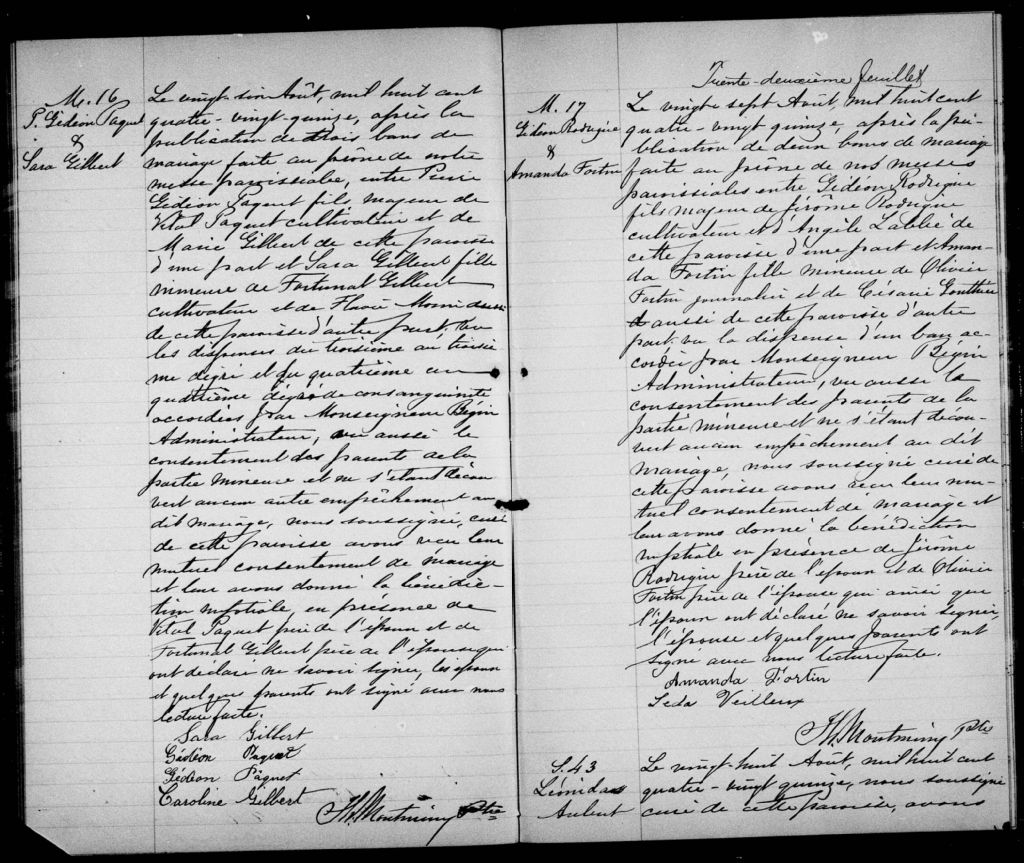 M. 16
P. Gédéon Paquet
&
Sara Gilbert
Le vingt six Août, mil huit cent
quatre-vingt-quinze, après la
publication de trois bans de
mariage faite au prône de notre
messe paroissiale, entre Pierre
Gédéon Paquet fils majeur de
Vital Paquet cultivateur et de
Marie Gilbert de cette paroisse
d'une part et Sara Gilbert fille
mineure de Fortunat Gilbert
cultivateur et de Flavie Morin aussi
de cette paroisse d'autre part, vu
les dispenses du troisième au troisiè
me degré et du quatrième au
quatrième degré de consanguinité
accordées par Monseigneur Bégin
Administrateur, vu aussi le
consentement des parents de la
partie mineure et ne s'étant décou
vert aucun autre empêchement au
dit mariage, nous soussigné, curé
de cette paroisse avons reçu leur
mutuel consentement de mariage
et leur avons donné la bénédic-
tion nuptiale, en présence de
Vital Paquet père de l'époux et de
Fortunat Gilbert père de l'épouse qui
ont déclaré ne savoir signer, les époux
et quelques parents ont signé avec nous
lecture faite.
Sara Gilbert
Gédéon Paquet
Gédéon Paquet
Caroline Gilbert
Montminy Ptre
Trente-deuxième feuillet
M. 17
Gédéon Rodrigue
&
Amanda Fortin
Le vingt sept Août, mil huit cent
quatre-vingt quinze, après la pu-
blication de deux bans de mariage
faite au prône de nos messes
paroissiales entre Gédéon Rodrigue
fils majeur de Jérôme Rodrigue
cultivateur et d'Angèle Labbé de
cette paroisse d'une part et Aman-
da Fortin fille mineure de Olivier
Fortin journalier et de Césarie Gouthier
aussi de cette paroisse d'autre
part, vu la dispense d'un ban ac-
cordée par Monseigneur Bégin
Administrateur, vu aussi le
consentement des parents de la
partie mineure et ne s'étant décou-
vert aucun empêchement au dit
mariage, nous soussigné curé de
cette paroisse avons reçu leur mu-
tuel consentement de mariage et
leur avons donné la bénédiction
nuptiale en présence de Jérôme
Rodrigue père de l'époux et de Olivier
Fortin père de l'épouse qui ainsi que
l'époux ont déclaré ne savoir signer,
l'épouse et quelques parents ont
signé avec nous lecture faite.
Amanda Fortin
Leda Veilleux
Montminy Ptre
S. 43
Léonidas
Aubert
Le vingt-huit Août, mil huit cent
quatre-vingt quinze, nous soussigné
curé de cette paroisse, avons